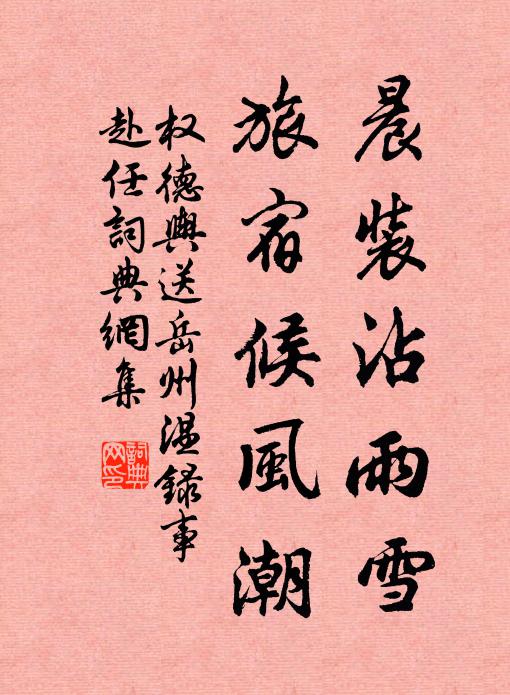 晨裝沾雨雪
旅宿候風潮
权德輿送岳州温録事
赴任詞典網集
詞典
网印